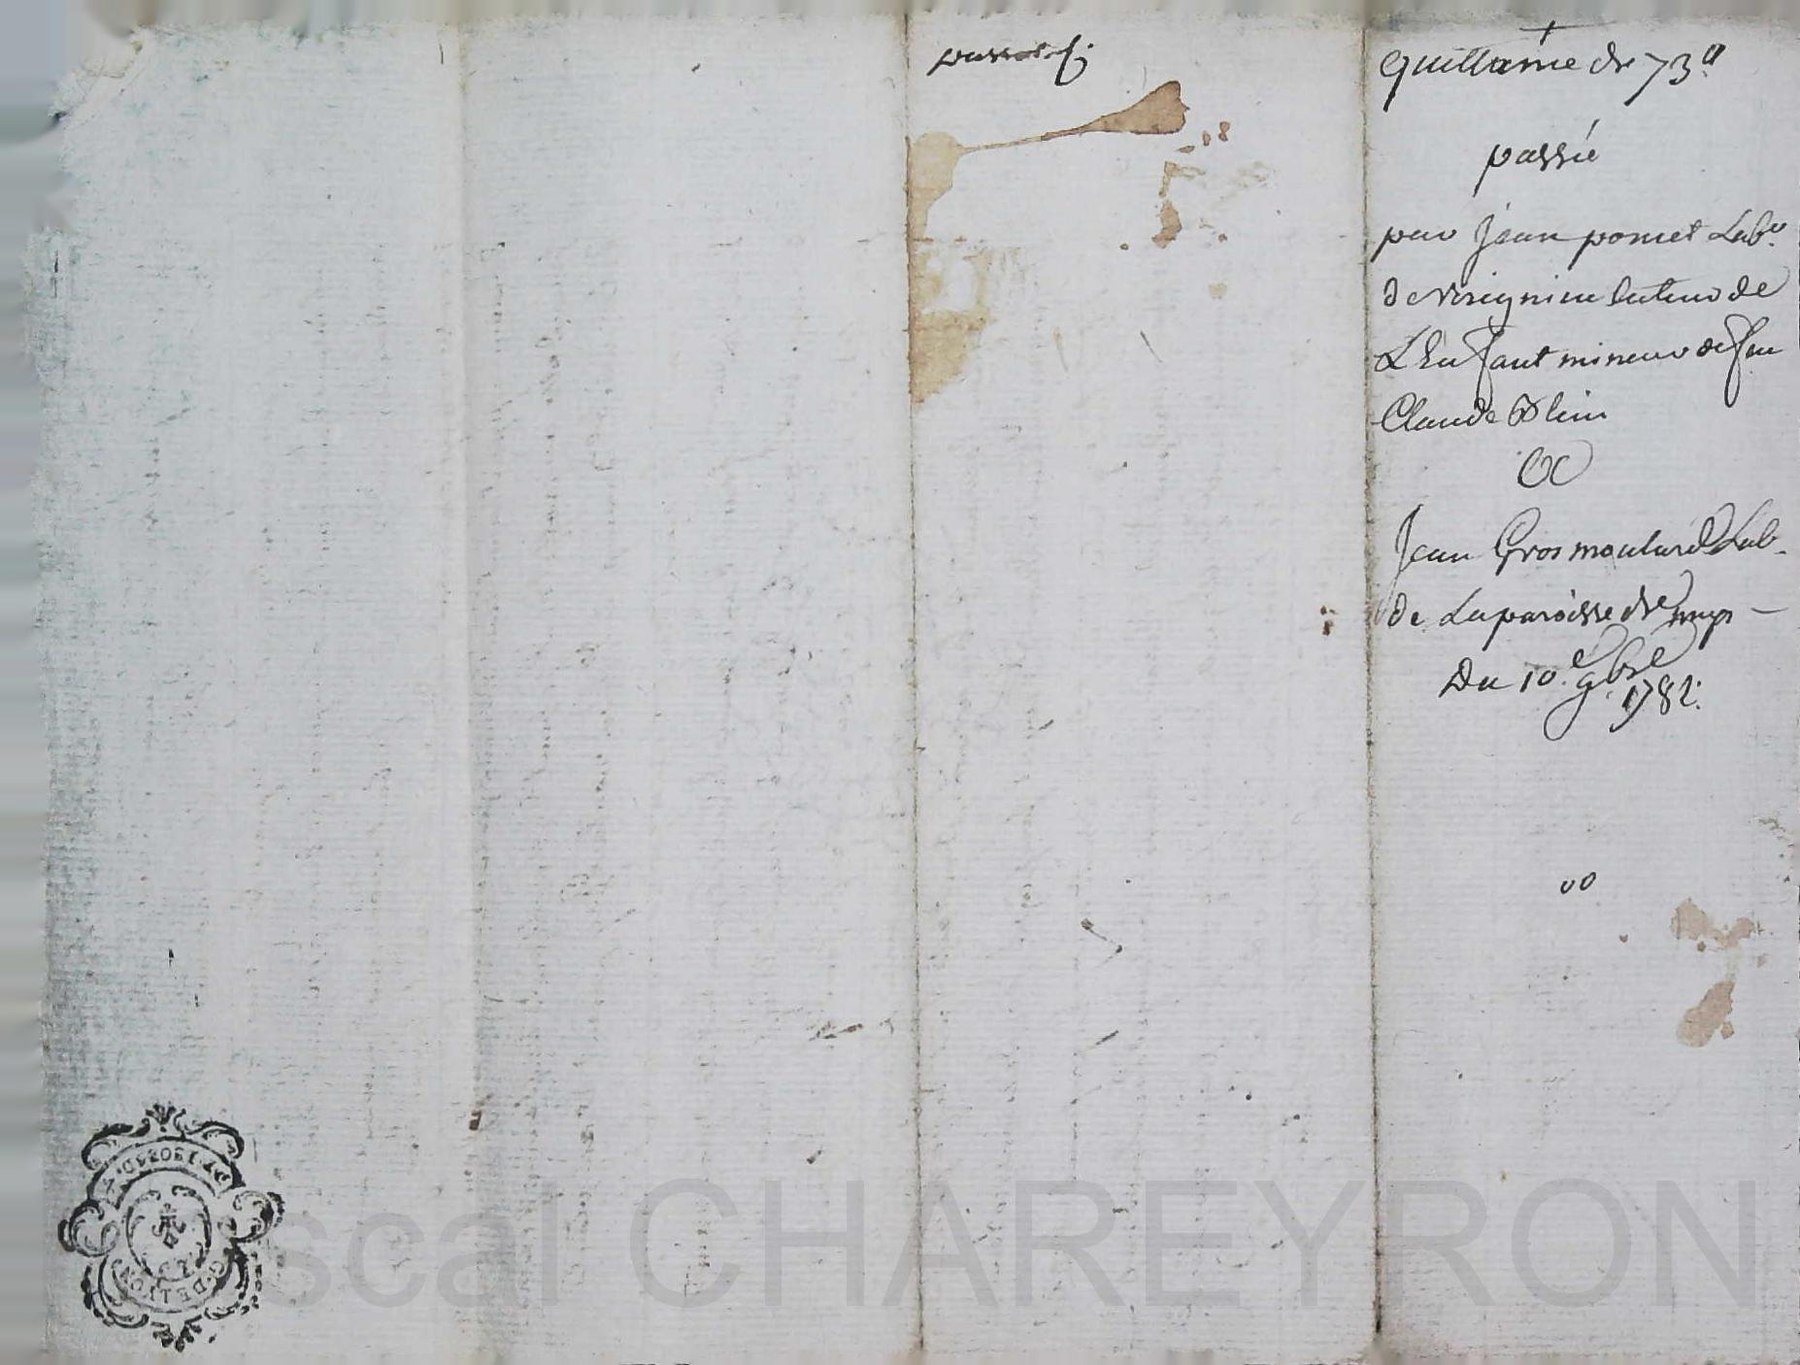 quittance de 73ᵗᵗ
passée
par Jean poncet Labʳ.
de vérignieu tuteur de
L'Enfant mineur de feu
Claude Blein
&
Jean Gros moulard Lab.
de La paroisse de
Du 10ᵉ. 9bre
1782.
G. DE LYON
scal CHAREYRON